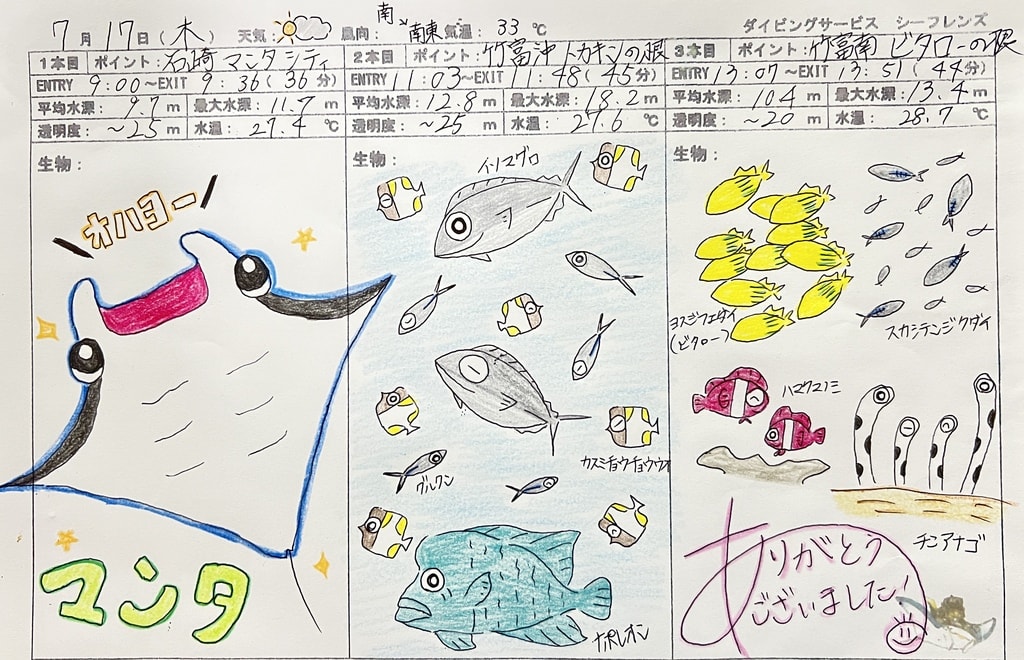 7月17日(木) 天気: 風向: 南、南東 気温: 33℃ ダイビングサービス シーフレンズ
1本目 ポイント: 石崎 マンタシティ
ENTRY 9:00～EXIT 9:36(36分)
平均水深: 9.7m 最大水深: 11.7m
透明度: ～25m 水温: 27.4℃
生物:
オハヨー
マンタ
2本目 ポイント: 竹富沖 トカキンの根
ENTRY 11:03～EXIT 11:48(45分)
平均水深: 12.8m 最大水深: 18.2m
透明度: ～25m 水温: 27.6℃
生物:
イソマグロ
カスミチョウチョウウオ
グルクン
ナポレオン
3本目 ポイント: 竹富南 ビタローの根
ENTRY 13:07～EXIT 13:51(44分)
平均水深: 10.4m 最大水深: 13.4m
透明度: ～20m 水温: 28.7℃
生物:
ヨスジフエダイ
(ビタロー)
スカシテンジクダイ
ハマクマノミ
チンアナゴ
ありがとう
ございました!